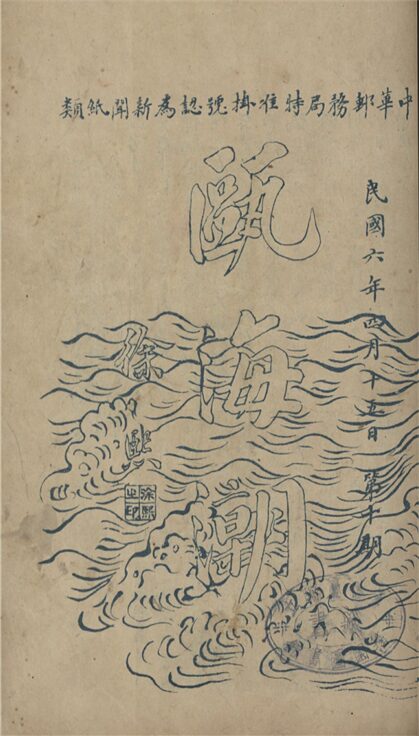 中華郵務局特准掛號認為新聞紙類
民國六年四月十五日 第十期
甌海潮
徐熙
徐熙之印